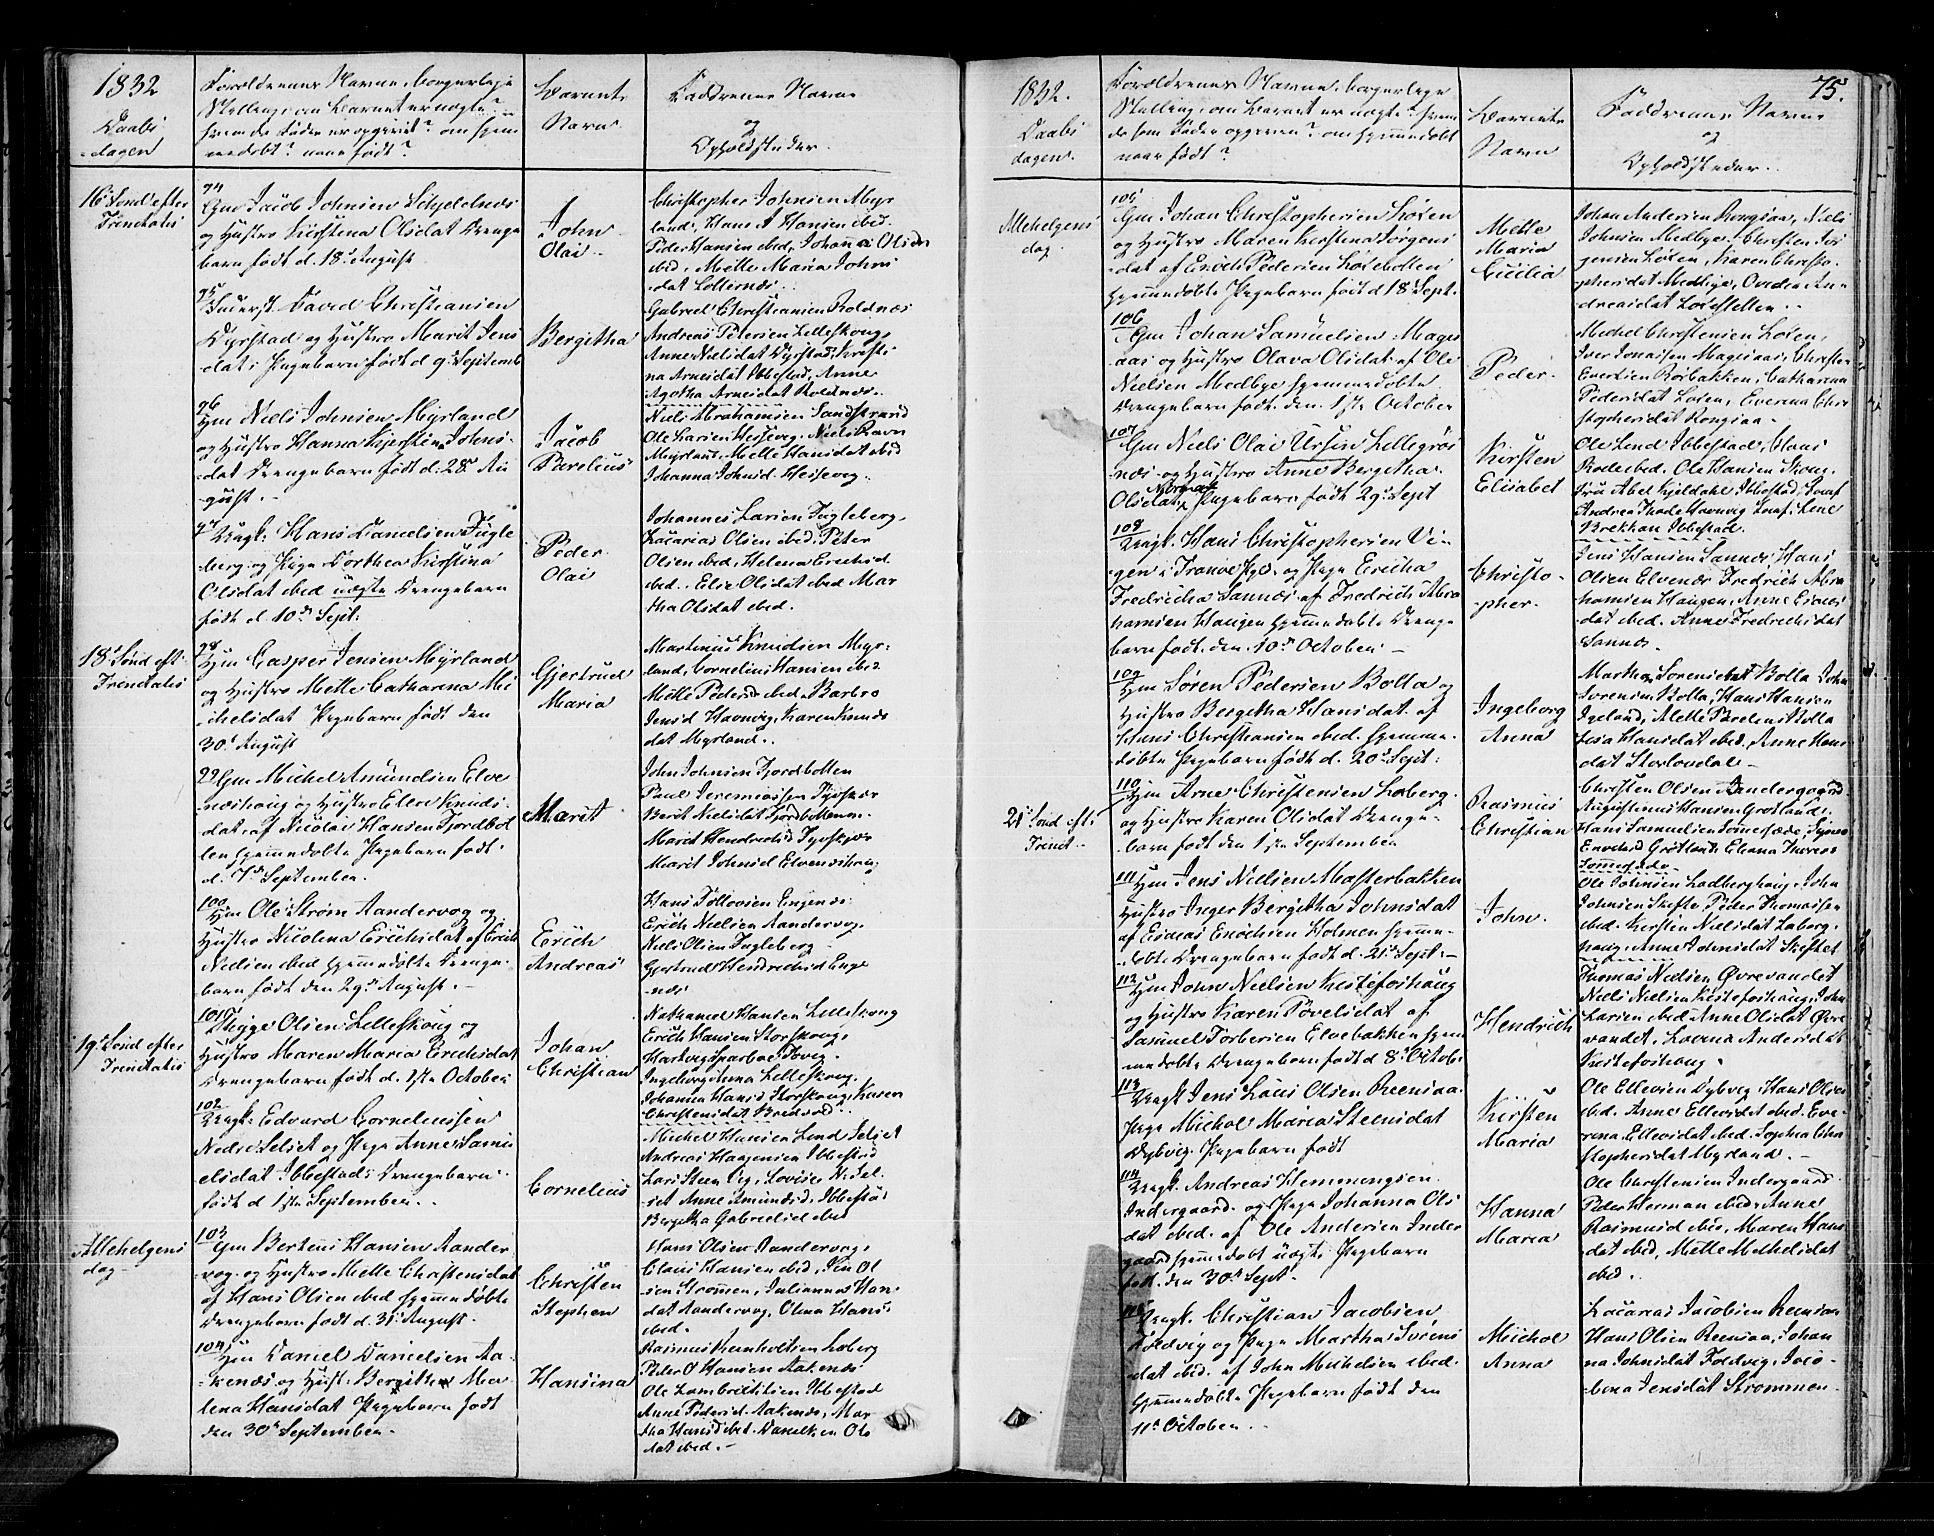 1832
Daabs
-dagen
Forældrenes Navne, borgerlige
Stilling, om Barnet er uægte?
hvem da Fader er opgivet? om hjem
medøbt? naar født?
Barnets
Navn
Faddrenes Navne
og
Opholdsteder.
16 Sønd efter
Trinitatis
94
Gm Jacob Johnsen Schjeldnæs
og Hustro Kirstina Olsdat Drenge
barn født d. 18 August
John
Olai
Christopher Johnsen Myr
land, Hans A Hansen ibd.
Peder Hansen ibid, Johan Olsen
ibd, Mette Maria Johns
dat
95
David Christiansen
Dyrstad og Hustro Marit Jens
dat: Pigebarn født d 9 Septemb
Bergitha
Gabriel Christiansen Roldnæs
Andreas Petersen Lilleskong,
Anne Nielsdat Dyrstad, Kirsti
na Arnesdat Ibbestad, Anne
Agotha Arnesdat Roldnæs.
96
Hm Niels Johnsen Myrland
og Hustro Hanna Kjerstina Johns-
dat Drengebarn født d. 28 Au
gust.
Jacob
Parelius
Niels Abrahamsen Sandstrand
Ole Larsen Hessevig, Niels Ravn
Myrland, Mette Hansdat ibid
Johanna Johnsd Hessevig
97
Ungk: Hans Danielsen Fugle
berg og Pige Dorthea Kirstina
Olsdat ibid uægte Drengebarn
født d. 10 Sept:
Peder
Olai
Johannes Larsen Fugleberg,
Zacarias Olsen ibid, Peter
Olsen ibid, Helena Erichsd
ibd. Elie Olsdat ibid Mar
tha Olsdat ibid.
18 Sønd eft:
Trinitatis
98
Hm Casper Jensen Myrland
og Hustro Mette Catharina Mi
chelsdat Pigebarn født den
30 August
Gjertrud
Maria
Martinus Knudsen Myr-
land, Cornelius Hansen ibid
Mette Pedersd ibid, Barbro
Jensd Havnvig, Karen Knuds
dat Myrland.
99 Gm Michel Amundsen Elve
næshaug og Hustro Ellen Knuds-
dat, af Nicolai Hansen Fjordbot
ten hjemmedøbte Pigebarn født
d. 7 September.
Marit
John Johnsen Fjordbotten
Paul Jeremiassen
Berit Nielsdat Fjordbotten
Marit Hendrichsd
Marit Johnsd Elvenæshaug
100
Hm Ole Strøm Aandervog og
Hustro Nicolena Erichsdat af Erich
Nielsen ibid hjemmedøbte Drenge-
barn født den 29 August.
Erich
Andreas
Hans Tollevsen Engenæs
Erich Nielsen Aandervog,
Niels Olsen Fugleberg
Gjertrud Hendrichsd Enge
næs
19 Sønd efter
Trinitatis
101
Thyge Olsen Lilleskoug og
Hustro Maren Maria Erichsdat
Drengebarn født d. 1ste October
Johan
Christian
Nathanael Hansen Lilleskoug
Erich Hansen Storskoug,
Hartvig Sparboe Ibvig.
Ingeborg Anna Lilleskoug,
Johanna Hansd Storskoug, Karen
Christensdat
102
Ungk: Edvard Corneliussen
Nedre Selset og Pige Anne Samu
elsdat Ibbestad: Drengebarn
født d 1ste September.
Cornelius
Michel Hansen Lund Selset
Andreas Haagensen Ibbestad
Anne Amundsd. Ibbestad
Bergitha Gabrielsd ibid
Allehelgens
dag
103
Gm Bertus Hansen Aander
vog og Hustro Mette Christensdat
af Hans Olsen ibid hjemmedøbte
Drengebarn født d. 31 August.
Christen
Stephen
Hans Olsen Aandervog,
Claus Hansen ibid,
sen Strømmen, Julianna Han
dat Aandervog, Olina Hans
ibid.
104
Hm Daniel Danielsen Aa-
kenæs og Hust: Bergitte Ma
lena Hansdat Pigebarn født
den 30 September.
Hansina
Rasmus Reinholtsen Loberg
Peder O Hansen Aakenæs
Ole Lambrechtsen Ibbestad
Anne Pedersd. Aakenæs, Mar
tha Hansd ibid. Ols
dat ibid.
75.
1832.
Daabs
dagen.
Forældrenes Navne, borgerlige
Stilling, om Barnet er uægte? hvem
da som Fader opgiven? om hjemmedøbt
naar født?
Barnets
Navn
Faddrenes Navne
og
Opholdsteder.
Allehelgens
dag
105
Gm Johan Christophersen Løsen
og Hustro Maren Kirstina Jørgens
dat af Enoch Pedersen Løsebotten
hjemmedøbte Pigebarn født d 18 Sept.
Mette
Maria
Cicilia
Johan Andersen Rongsaa, Niels
Johnsen Medbye, Christen Jør
gensen Løsen, Karen Christo-
phersdat Medbye, Ovidia An-
dreasdat
106
Gm Johan Samuelsen Mages
aas og Hustro Olava Olsdat af Ole
Nielsen Medbye hjemmedøbte
Drengebarn født den 1ste October
Peder
Michel Christensen Løsen,
Iver Jonassen Magesaas, Christen
Evertsen Rørbakken, Catharina
Pedersdat Løsen, Everina Chri
stophersdat Rongsaa
107
Gm Niels Olai Ursin Lillegræs
næs og Hustro Anne Bergetha
Olsdat Norman Pigebarn født 29 Sept
Kirsten
Elisabet
Ole Lind Ibbestad, Claus
Ole Hansen Skoug,
Fru Abel Kjeldahl Ibbestad,
Andrea Thode Havnvig Jomf: Lene
Brekhan Ibbestad.
108
Ungk. Hans Christophersen Vi-
gen i Tranøe Pgd. og Pige Ericha
Fredricha Sannæs af Fredrich Abra
hamsen Haugen hjemmedøbte Drenge
barn født den 10 October
Christo-
pher.
Jens Hansen Sannæs, Hans
Olsen Elvenæs Fredrich Abra
hamsen Haugen, Anne
dat ibid. Anne Fredrichsdat
Sannæs.
109
Hm Søren Pedersen Bolla og
Hustro Bergitha Hansdat af
Hans Christiansen ibid hjemme-
døbte Pigebarn født d. 20 Sept:
Ingeborg
Anna
Martha Sørensdat Bolla John
Sørensen Bolla, Hans Hansen
Igeland, Mette Bolla
Hansdat ibid, Anne Hans
dat
21 Sønd eft:
Trinit
110
Hm Arne Christensen Loberg
og Hustro Karen Olsdat Drenge-
barn født den 1ste September
Rasmus
Christian
Christen Olsen Aandergaard
Augustinus Hansen Grøtland,
Hans Samuelsen
Enochsd Grøtland Eliana
111
Hm Jens Nielsen Masterbakken
Hustro Inger Bergitha Johnsdat
af Esaias Enochsen Holmen hjemme-
døbte Drengebarn født d. 21 Sept:
John.
Ole Johnsen Lodberghaug, John
Johnsen Skifte, Peder Thomassen
ibd. Kirsten Nielsdat Loberg-
haug, Anne Johnsdat
112
Hm John Nielsen Kistefoshaug
og Hustro Karen Povelsdat af
Samuel Torbersen Elvebakken hjem
medøbte Drengebarn født d 8 Octobr
Hendrich
Thomas Nielsen Øvrevandet
Niels Nielsen Kistefoshaug, John
Larsen ibid Anne Olsdat Øvre
vandet, Lovena Andersdat
Kistefoshaug
113
Ungk Jens Laus Olsen Reensaa
Pige Michol Maria Steensdat
Dybvig. Pigebarn født
Kirsten
Maria
Ole Ellevsen Dybvig, Hans Olsen
ibd. Anne Ellevsdat ibd. Eve-
rena Ellevsdat ibd. Sophia Chri
stophersdat Myrland.
114
Ungk. Andreas Hemmingsen
Indergaard og Pige Johanna Ols
dat ibid. af Ole Andersen Inder
gaard hjemmedøbt uægte Pigebarn
født den 30 Sept.
Hanna
Maria
Ole Christensen Indergaard
Peder Herman ibid, Anne
Rasmusd ibid, Maren Hans
dat ibid, Mette Michelsdat
ibid.
115
Ungk. Christian Jacobsen
Foldvig og Pige Martha Sørens
dat ibid. af John Michelsen ibed.
hjemmedøbte Pigebarn født den
11 October.
Michol
Anna
Zacarias Jacobsen Reensaa
Hans Olsen Reensaa, Johan
na Johnsdat Foldvig, Jaco-
bina Jensdat Strømmen